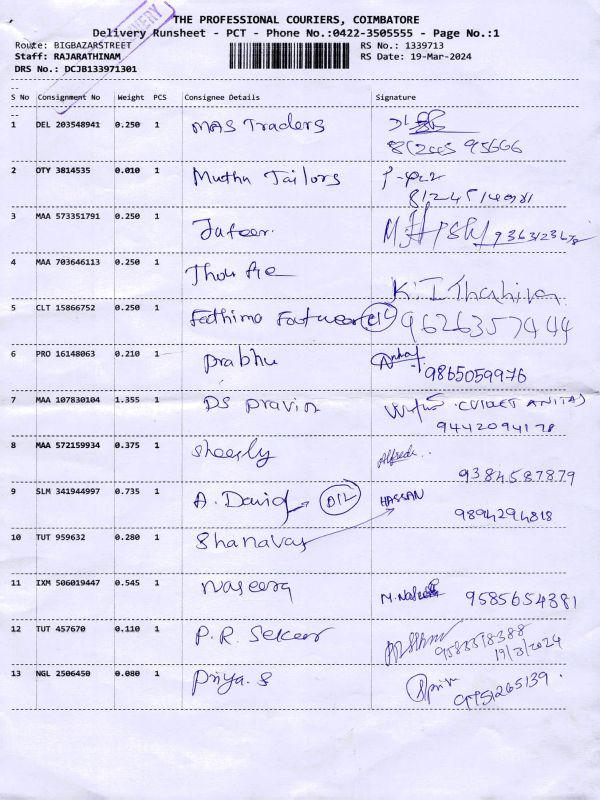 THE PROFESSIONAL COURIERS, COIMBATORE
Delivery Runsheet - PCT - Phone No.:0422-3505555 - Page No.:1
Route: BIGBAZARSTREET RS No.: 1339713
Staff: RAJARATHINAM RS Date: 19-Mar-2024
DRS No.: DCJB133971301
S No Consignment No Weight PCS Consignee Details Signature
1 DEL 203548941 0.250 1 MAS Traders
95666
2 OTY 3814535 0.010 1 Muthu Tailors
3 MAA 573351791 0.250 1 Jafeer.
4 MAA 703646113 0.250 1
K. I Thahira
5 CLT 15866752 0.250 1 Fathima Footwear DIL 9626357444
6 PRO 16148063 0.210 1 prabhu
9865059976
7 MAA 107830104 1.355 1 DS pravin
9442094178
8 MAA 572159934 0.375 1 sheerly Alfred
9384587879
9 SLM 341944997 0.735 1 A. David DIL HASSAN
9894294818
10 TUT 959632 0.280 1 Shanavas
11 IXM 506019447 0.545 1 Naseera M. 9585654381
12 TUT 457670 0.110 1 P. R. Seker
9588518388
19/3/2024
13 NGL 2506450 0.080 1 Priya. S
9751265139.